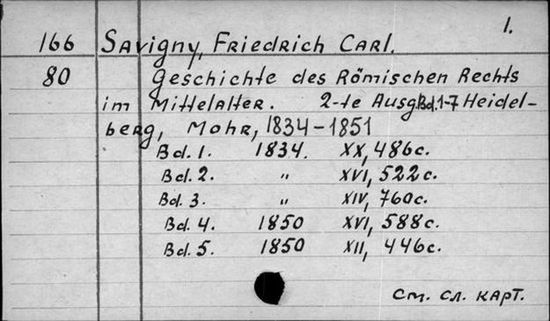 1.
166 Savigny, Friedrich Carl.
80 Geschichte des Römischen Rechts
im Mittelalter. 2-te Ausg. Bd.1-7 Heidel-
berg, Mohr, 1834-1851
Bd. 1. 1834. XX, 486c.
Bd. 2. " XVI, 522c.
Bd. 3. " XIV, 760c.
Bd. 4. 1850 XVI, 588c.
Bd. 5. 1850 XII, 446c.
см. сл. карт.